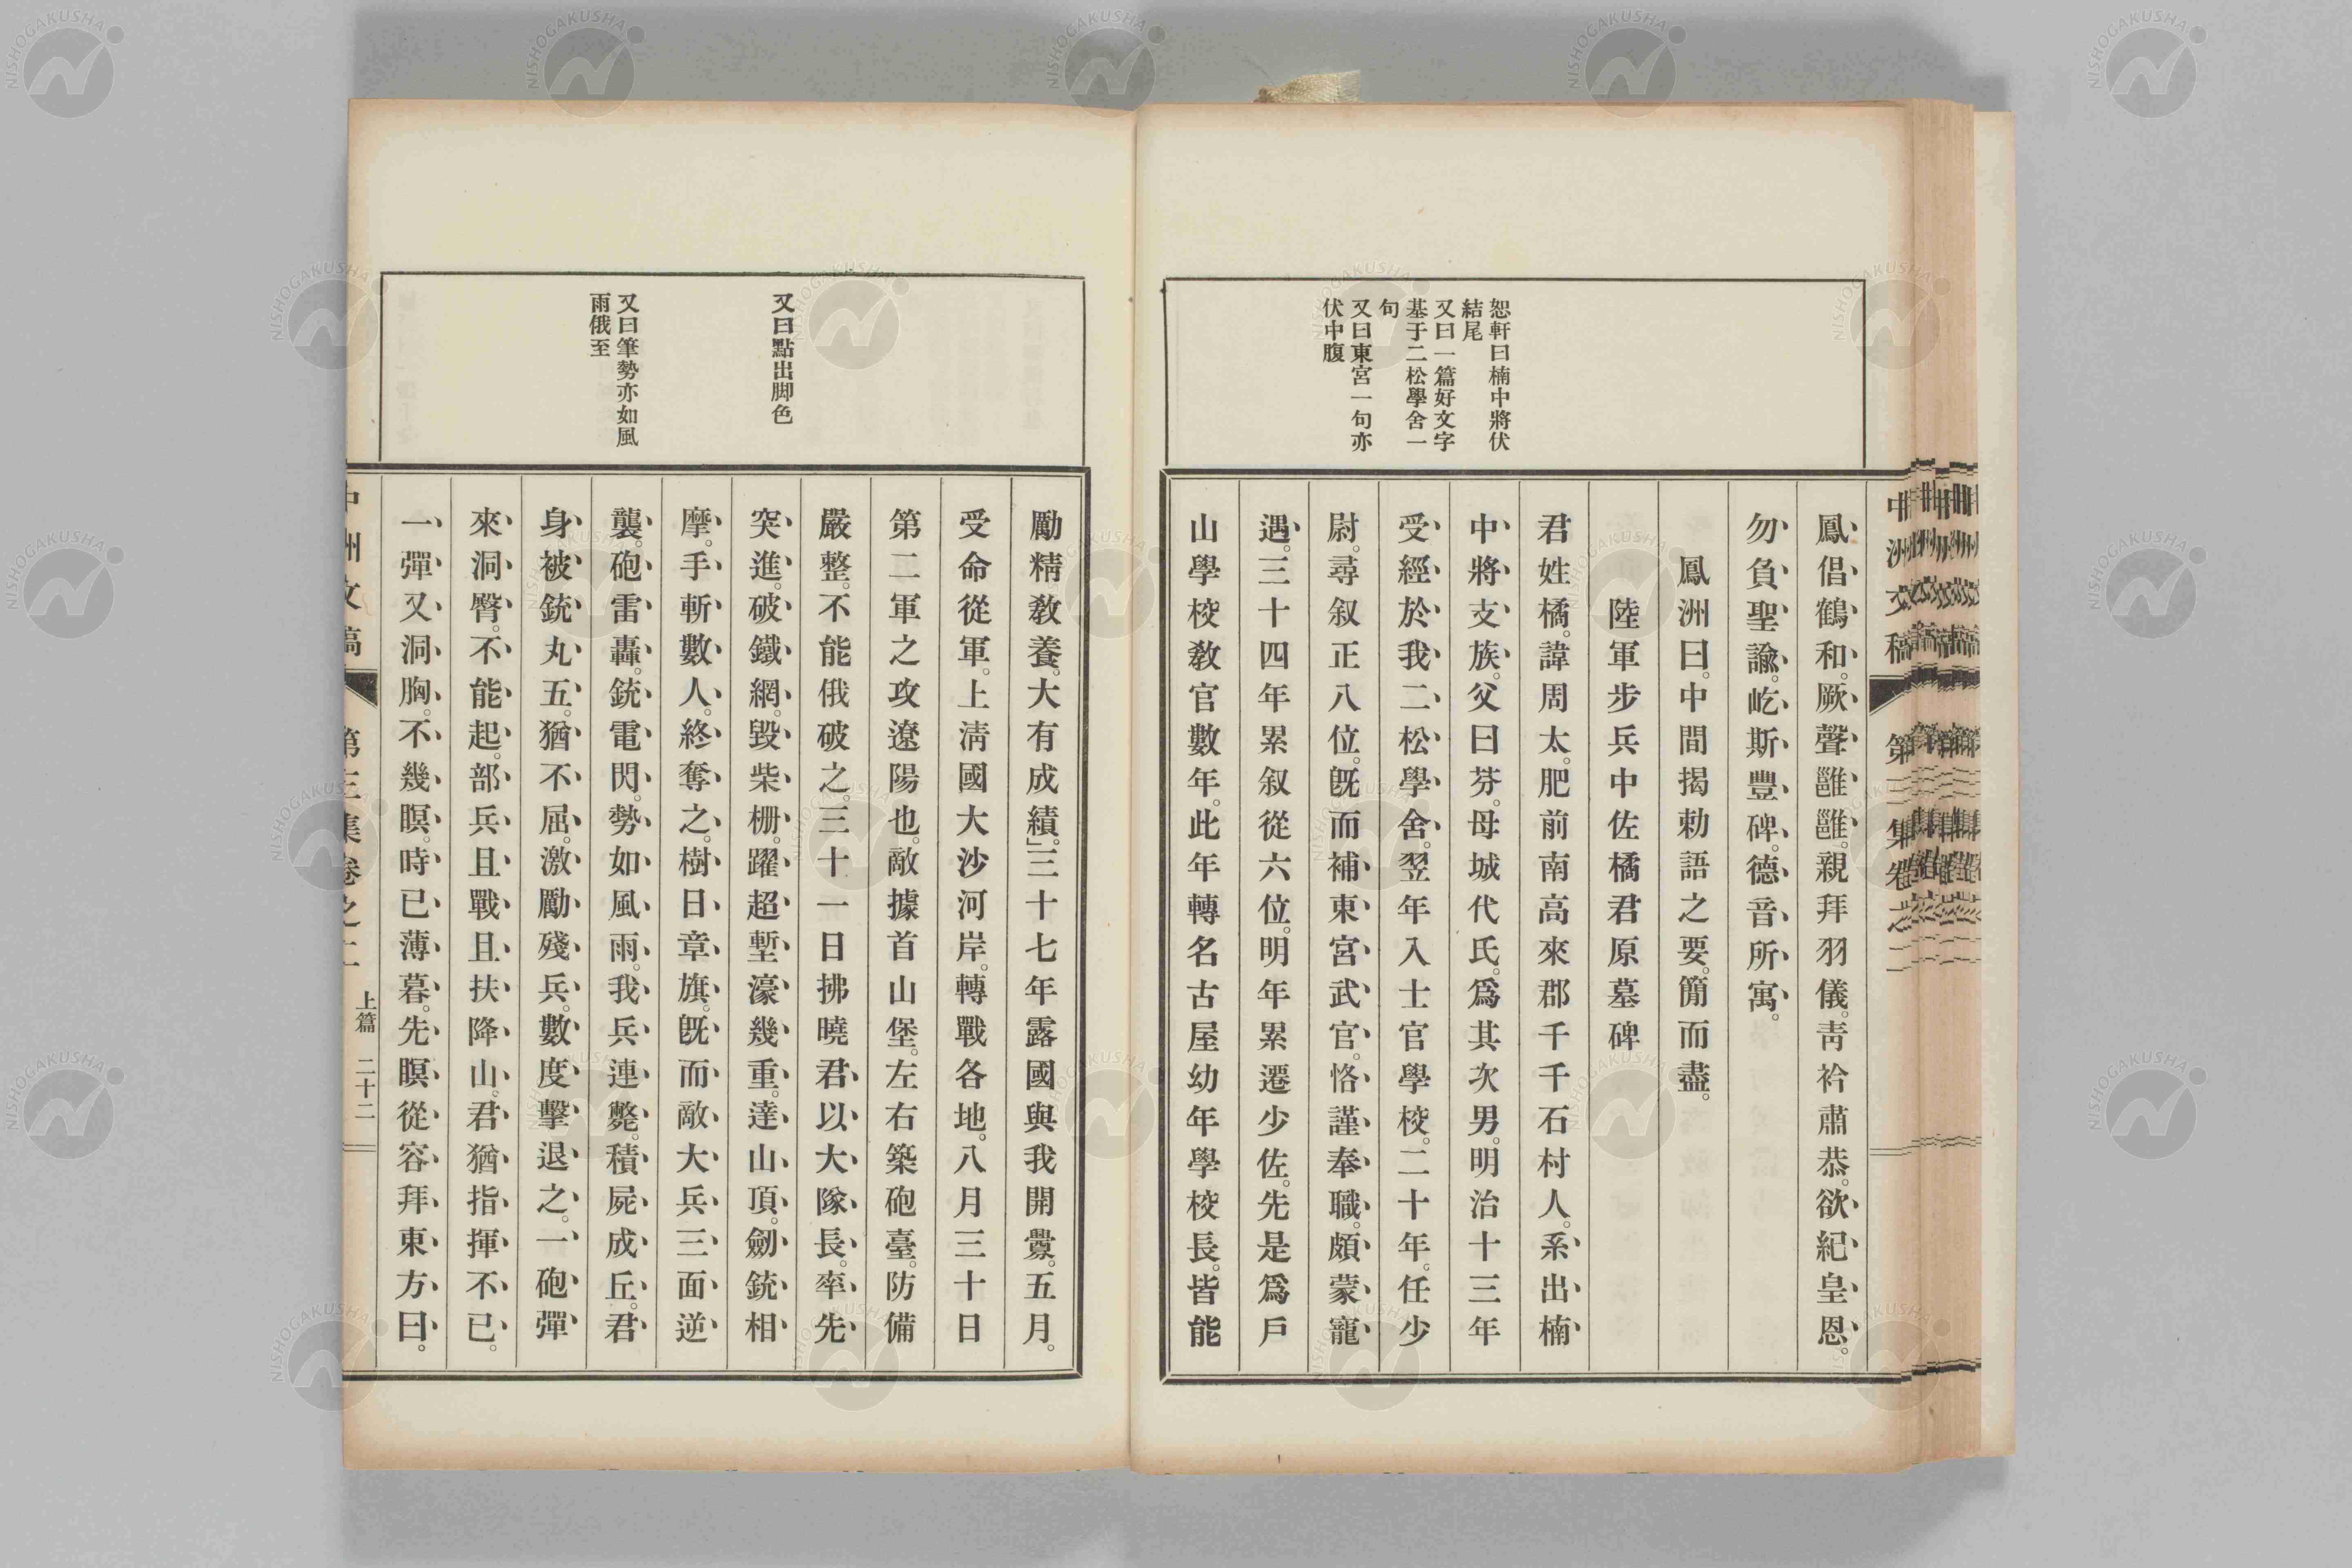 恕軒曰楠中將伏
結尾
又曰一篇好文字
基于二松學舍一
句
又曰東宮一句亦
伏中腹
中洲文稿 第三集卷之二
鳳倡鶴和。厥聲雝雝。親拜羽儀。靑衿肅恭。欲紀皇恩。
勿負聖諭。屹斯豐碑。德音所寓。
鳳洲曰。中間揭勅語之要。簡而盡。
陸軍步兵中佐橘君原墓碑
君姓橘。諱周太。肥前南高來郡千千石村人。系出楠
中將支族。父曰芬。母城代氏。爲其次男。明治十三年
受經於我二松學舍。翌年入士官學校。二十年。任少
尉。尋叙正八位。旣而補東宮武官。恪謹奉職。頗蒙寵
遇。三十四年累叙從六位。明年累遷少佐。先是爲戶
山學校敎官數年。此年轉名古屋幼年學校長。皆能
又曰點出脚色
又曰筆勢亦如風
雨俄至
勵精敎養。大有成績。」三十七年露國與我開釁。五月。
受命從軍。上淸國大沙河岸。轉戰各地。八月三十日
第二軍之攻遼陽也。敵據首山堡。左右築砲臺。防備
嚴整。不能俄破之。三十一日拂曉君以大隊長。率先
突進。破鐵網。毀柴柵。躍超塹濠幾重。達山頂。劒銃相
摩。手斬數人。終奪之。樹日章旗。旣而敵大兵三面逆
襲。砲雷轟。銃電閃。勢如風雨。我兵連斃。積屍成丘。君
身被銃丸五。猶不屈。激勵殘兵。數度擊退之。一砲彈
來洞臀。不能起。部兵且戰且扶降山。君猶指揮不已。
一彈又洞胸。不幾瞑。時已薄暮。先瞑從容拜東方曰。
中洲文稿 第三集卷之二 上篇 二十二
NISHOGAKUSHA